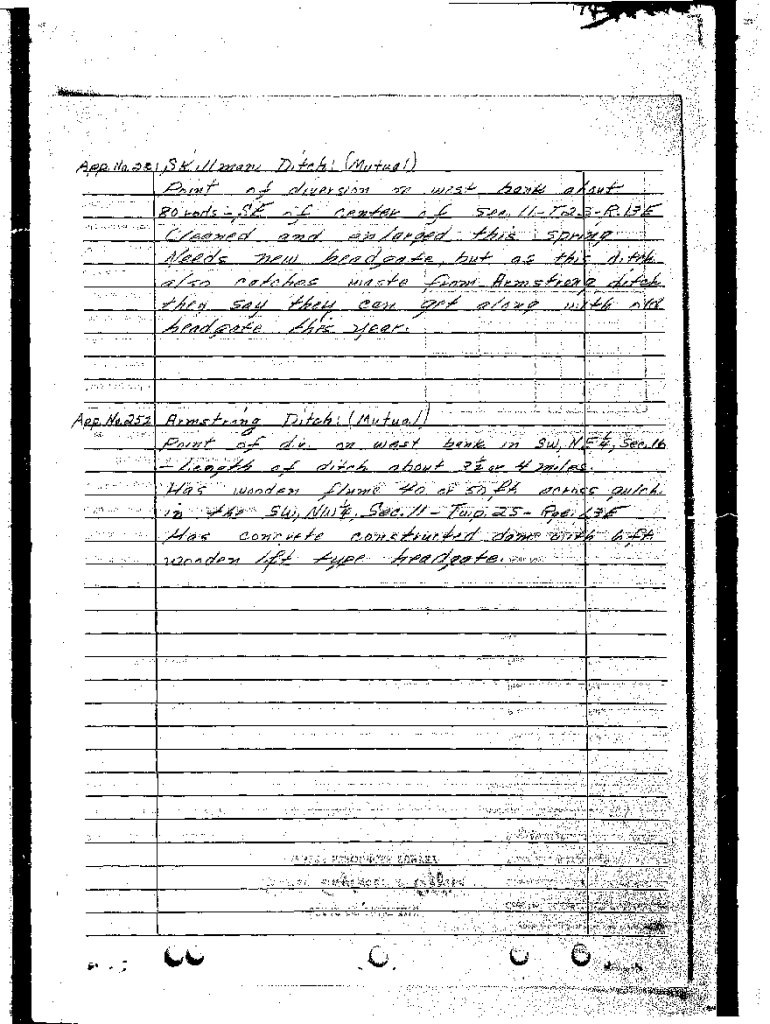 App. No. 251 Skillman Ditch: (Mutual)
Point of diversion on west bank about
80 rods - SE of center of Sec. 11 - T.2S - R.13E
Cleaned and enlarged this spring.
Needs new headgate, but as this ditch
also catches waste from Armstrong ditch
they say they can get along with old
headgate this year.
App. No. 252 Armstring Ditch: (Mutual)
Point of div. on west bank in SW, NE¼, Sec. 16
- Length of ditch about 3½ or 4 miles.
Has wooden flume 40 or 50 ft across gulch
in the SW, NW¼, Sec. 11 - Twp. 2S - Rge. 13E
Has concrete constructed dam with 6 ft
wooden lift type headgate.